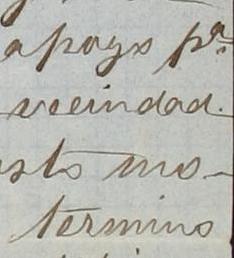 apoyo pª
vecindad.
esto mo-
termino